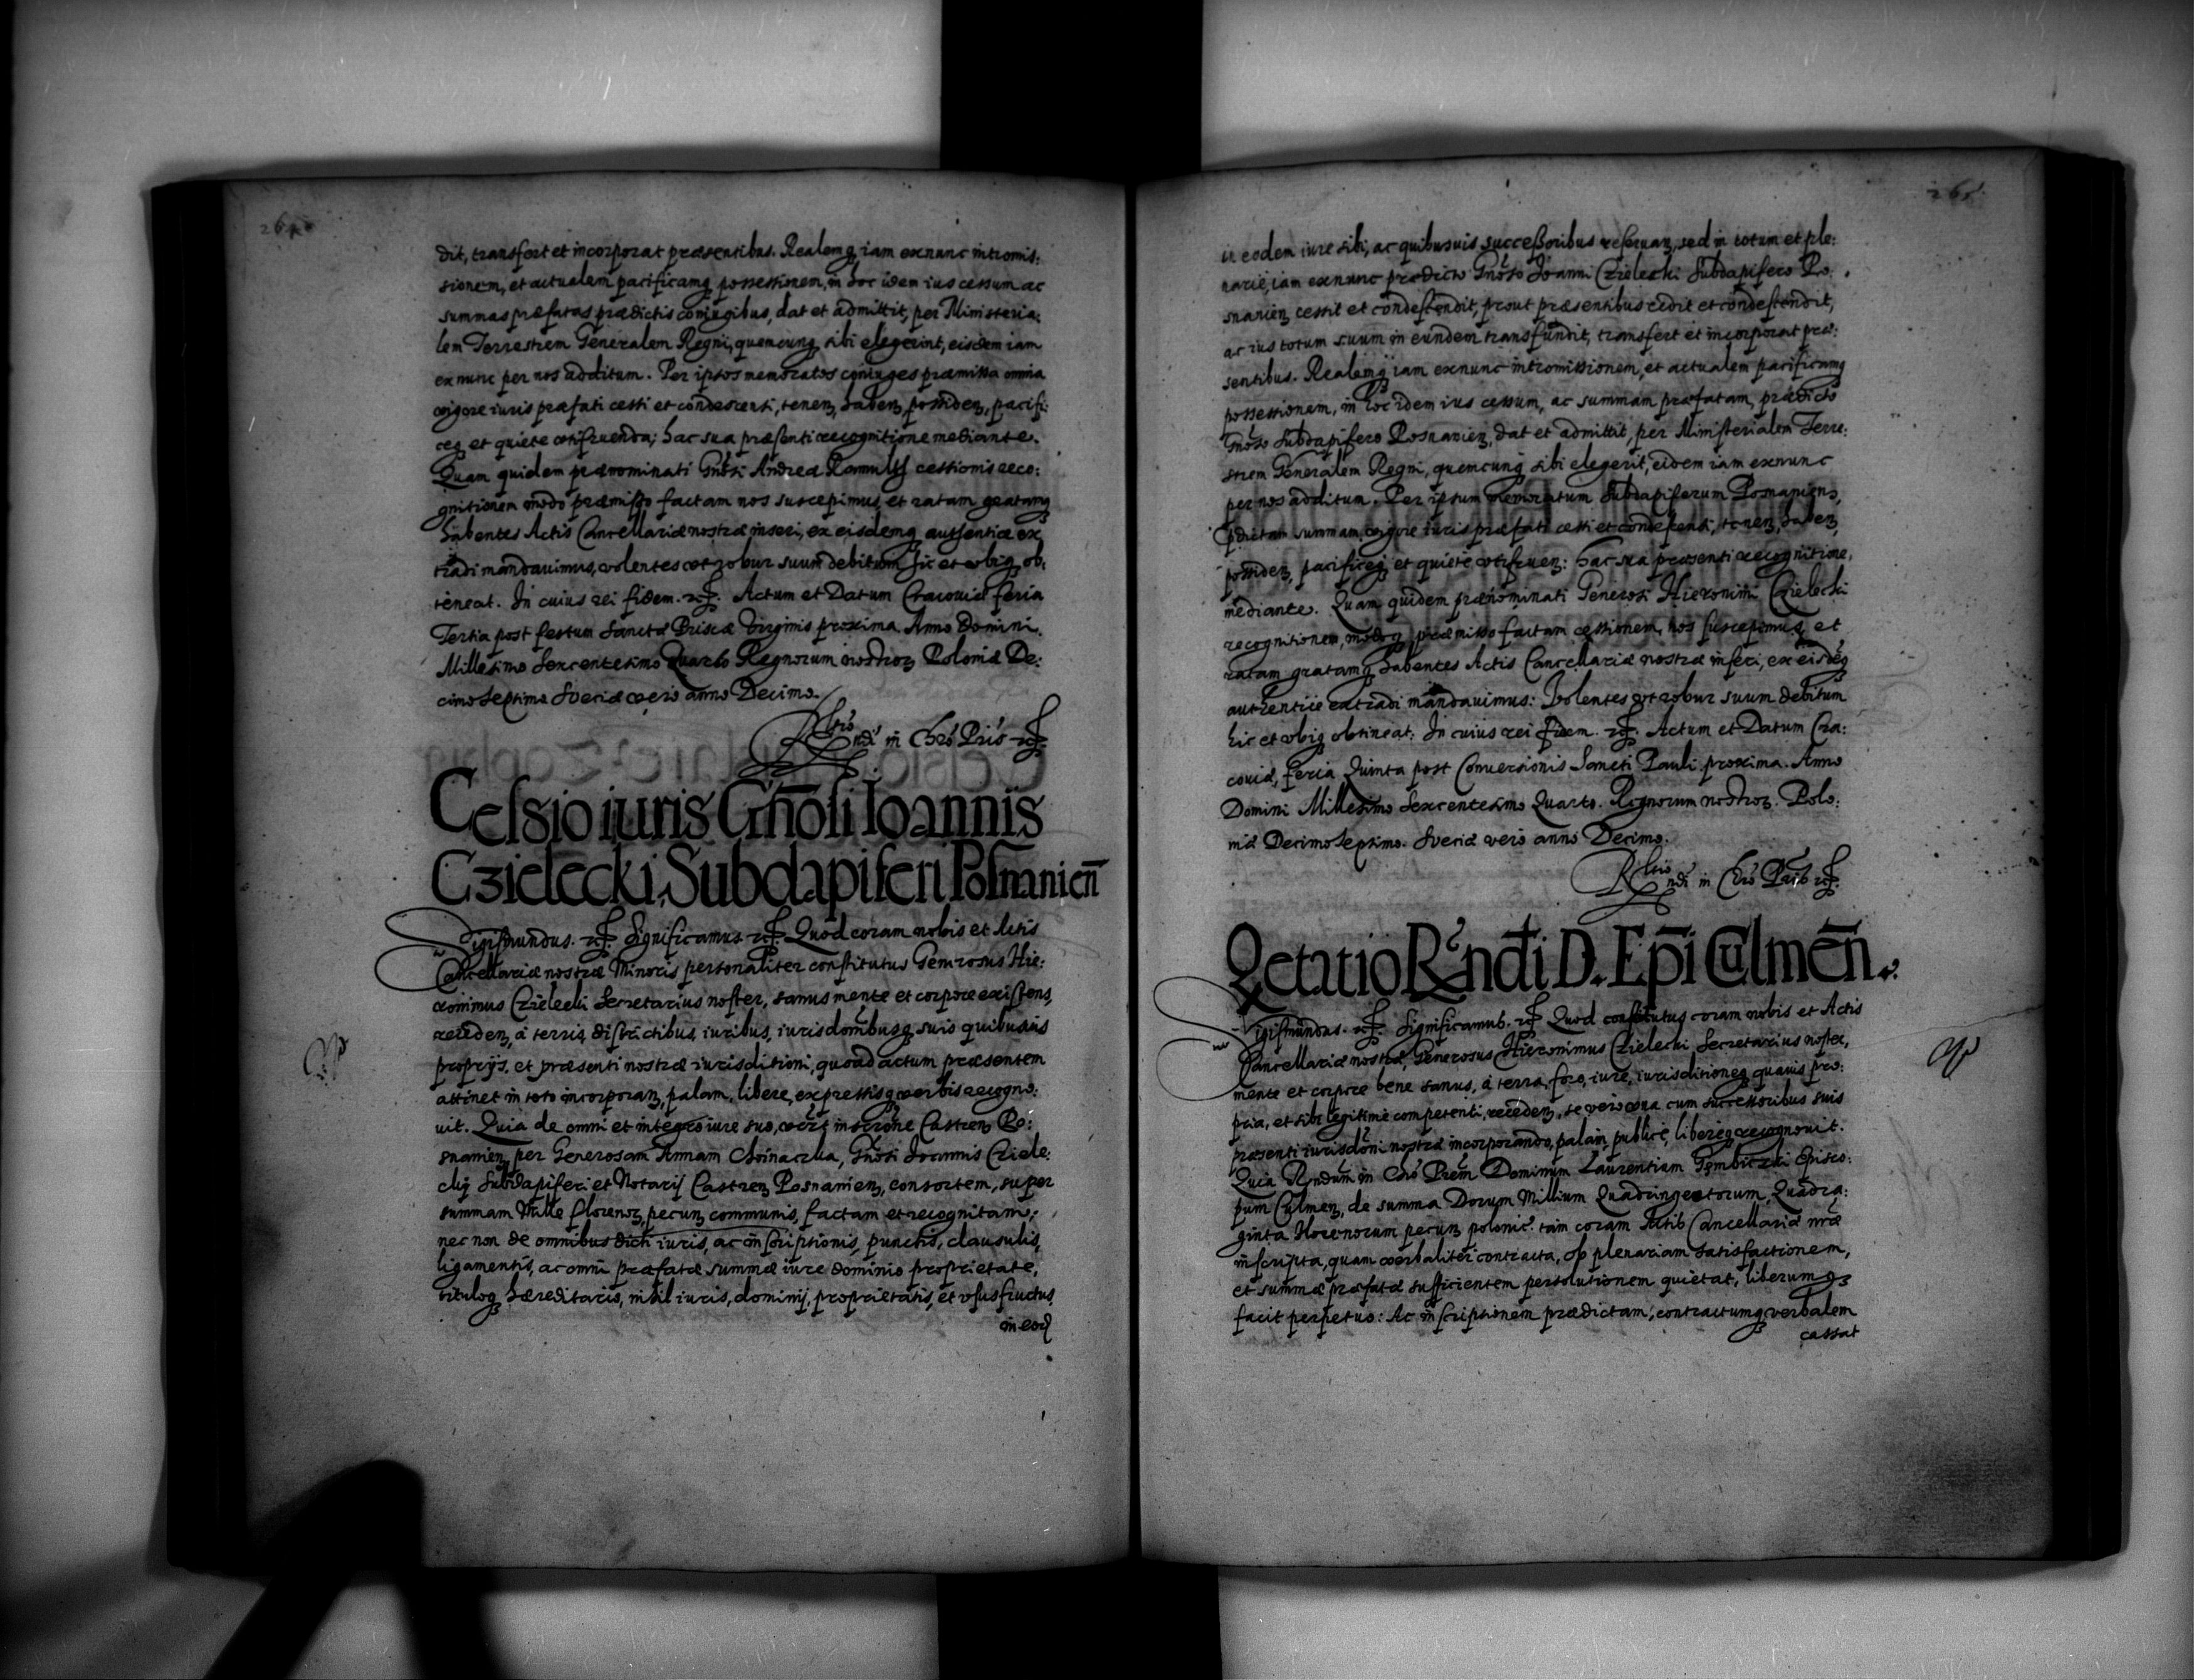 264
dit, transfert et incorporat præsentibus. Realemq iam exnunc intromis:
sionem, et actualem pacificamq possessionem, in hoc idem ius cessum ac
summas præfatas prædictis coniugibus, dat et admittit, per Ministeria:
lem Terrestrem Generalem Regni, quemcunq sibi elegerint, eisdem iam
exnunc per nos additum. Per ipsos memoratos coniuges præmissa omnia
vigore iuris præfati cessi et condescensi, tenen, haben, possiden, pacifi:
ceq et quiete utifruenda; hac sua præsenti recognitione mediante.
Quam quidem prænominati Gnosi Andreæ cessionis reco:
gnitionem modo præmisso factam nos suscepimus, et ratam gratamq
habentes Actis Cancellariæ nostræ inseri, ex eisdemq authentice ex
tradi mandavimus, volentes ut robur suum debitum hic et ubiq ob:
tineat. In cuius rei fidem. Actum et Datum Cracoviæ feria
Tertia post festum Sanctæ Priscæ Virginis proxima. Anno Domini.
Millesimo Sexcentesimo Quarto Regnorum nostror Poloniæ De:
cimo septimo Sveciæ vero anno Decimo.
Rltio Rndi in Chro Pris
Cessio iuris Gnosi Ioannis
Czielecki, Subdapiferi Posnanien
Sigismundus. Significamus. Quod coram nobis et Actis
Cancellariæ nostræ Minoris personaliter constitutus Generosus Hie:
ronimus Czielecki Secretarius noster, sanus mente et corpore existens,
receden, a terris, districtibus, iuribus, iurisdombusq suis quibusvis
proprijs, et præsenti nostræ iurisditioni, quoad actum præsentem
attinet in toto incorporan, palam, libere, expressisq verbis recogno:
vit. Quia de omni et integro iure suo, inscrone Castren Po:
snanien per Generosam Annam Choinaczka, Gnosi Ioannis Cziele:
ckij Subdapiferi et Notarij Castren Posnanien, consortem, super
summam Mille florenor, pecun communis, factam et recognitam,
nec non de omnibus dicti iuris, ac inscriptionis, punctis, clausulis,
ligamentis, ac omni præfatæ summæ iure dominio proprietate,
tituloq hæreditario, nihil iuris, dominij, proprietatis, et ususfructus
in eod
265
in eodem iure sibi, ac quibusvis successoribus reservan, sed in totum et ple:
narie, iam exnunc prædicto Gnoso Ioanni Czielecki Subdapifero Po:
snanien cessit et condescendit, prout præsentibus cedit et condescendit,
ac ius totum suum in eundem transfundit, transfert et incorporat præ:
sentibus. Realemq iam exnunc intromissionem, et actualem pacificamq
possessionem, in hoc idem ius cessum, ac summam præfatam, prædicto
Gnoso Subdapifero Posnanien, dat et admittit, per Ministerialem Terre:
strem Generalem Regni, quemcunq sibi elegerit, eidem iam exnunc
per nos additum. Per ipsum memoratum Subdapiferum Posnaniens,
pdictam summam, vigore iuris præfati cessi et condescensi, tenen, haben,
possiden, pacificeq et quiete utifruen: hac sua præsenti recognitione,
mediante. Quam quidem prænominati Generosi Hieronimi Czielecki
recognitionem, modoq præmisso factam cessionem, nos suscepimus, et
ratam gratamq habentes Actis Cancellariæ nostræ inseri, ex eisdeq
authentice extradi mandavimus: Volentes ut robur suum debitum
hic et ubiq obtineat. In cuius rei fidem. Actum et Datum Cra:
coviæ, feria Quinta post Conversionis Sancti Pauli proxima. Anno
Domini Millesimo Sexcentesimo Quarto. Regnorum nostror. Polo:
niæ Decimo Septimo. Sveciæ vero anno Decimo.
Rltio Rndi in Chro Pris
Qetatio Rndi D. Epi Culmen.
Sigismundus. Significamus. Quod constitutus coram nobis et Actis
Cancellariæ nostræ, Generosus Hieronimus Czielecki Secretarius noster,
mente et corpore bene sanus, a terra, foro, iure, iurisditioneq quavis pro:
pria, et sibi legitime competenti, receden, se vero una cum successoribus suis
præsenti iurisdoni nostræ incorporando, palam, publice, libereq recognovit.
Quia Rndum in Chro Prem Dominum Laurentium Gembitzki Episco:
pum Culmen, de summa Dorum Millium Quadringentorum, Quadra:
ginta florenorum pecun polonic. tam coram Actis Cancellariæ nræ
inscripta, quam verbaliter contracta, ob plenariam satisfactionem,
et summæ præfatæ sufficientem persolutionem quietat, liberumq
facit perpetuo: Ac inscriptionem prædictam, contractumq verbalem
cassat